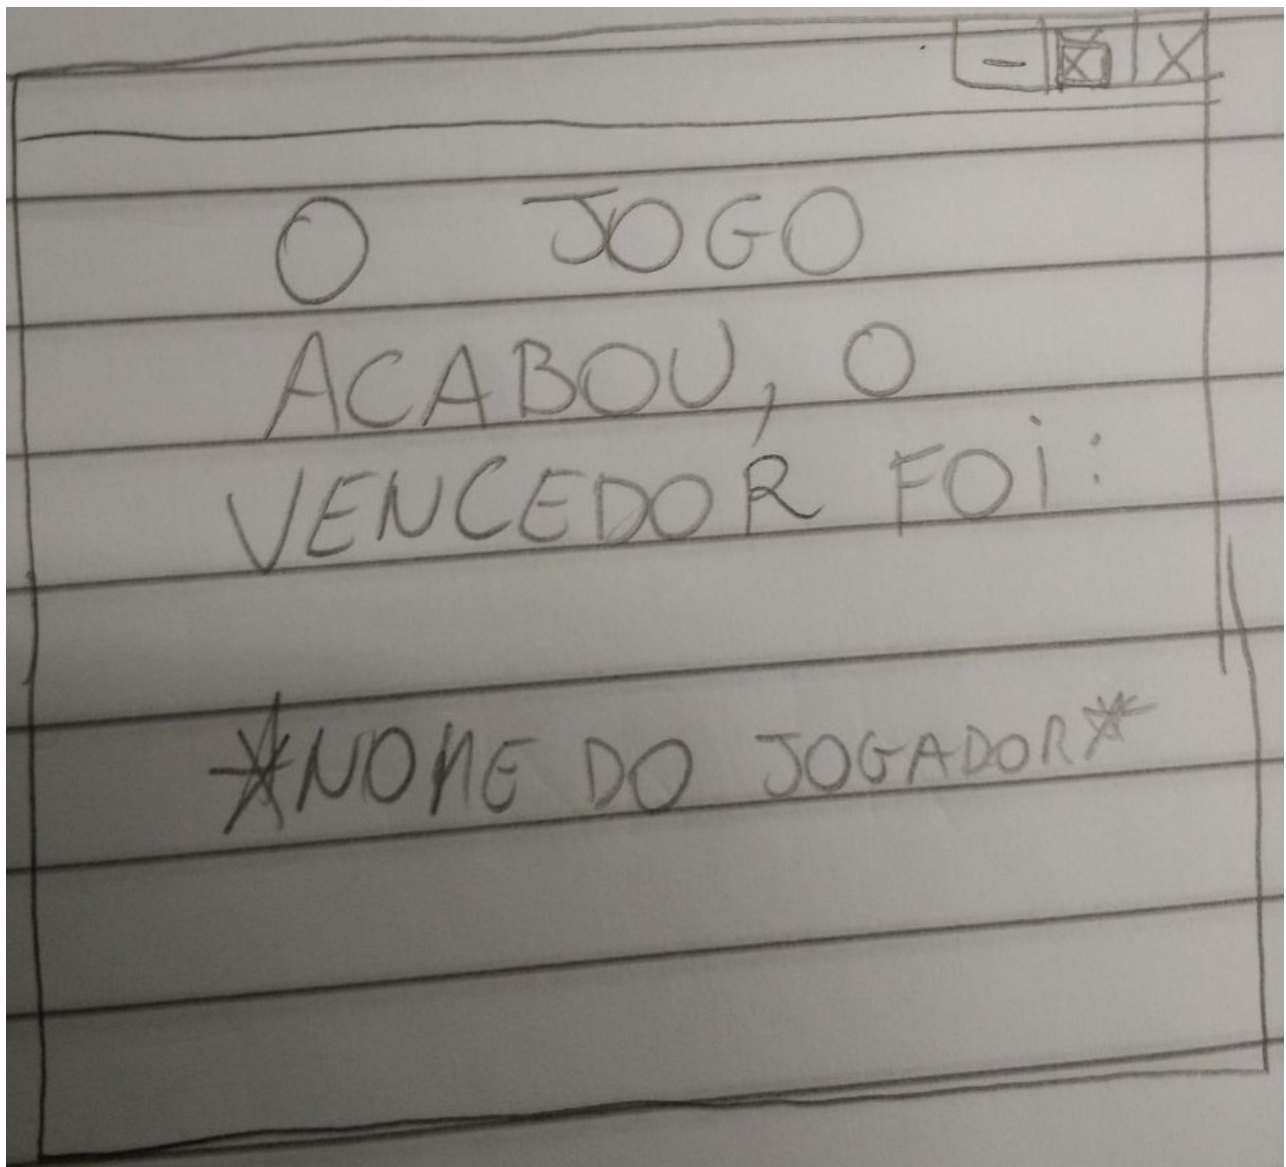 O JOGO
ACABOU, O
VENCEDOR FOi:
*NOME DO JOGADOR*